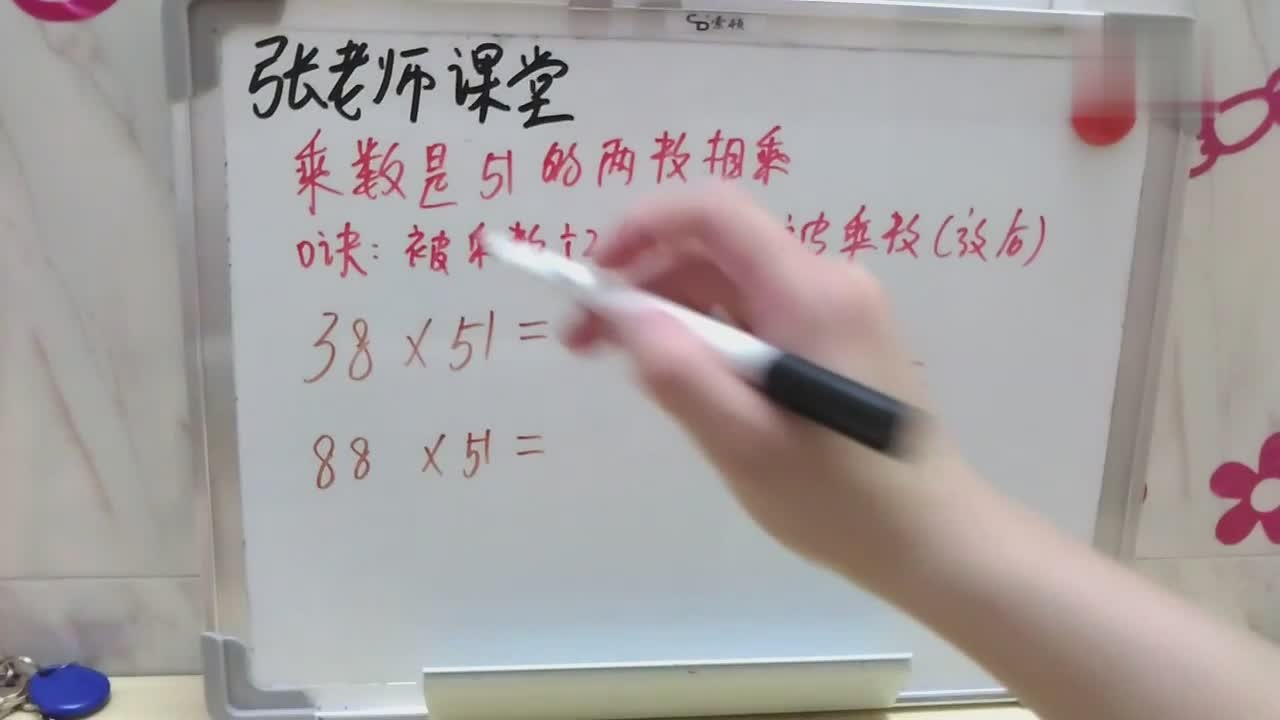 索顿
张老师课堂
乘数是51的两数相乘
口诀：被乘数 被乘数(放后)
38×51=
88×51=